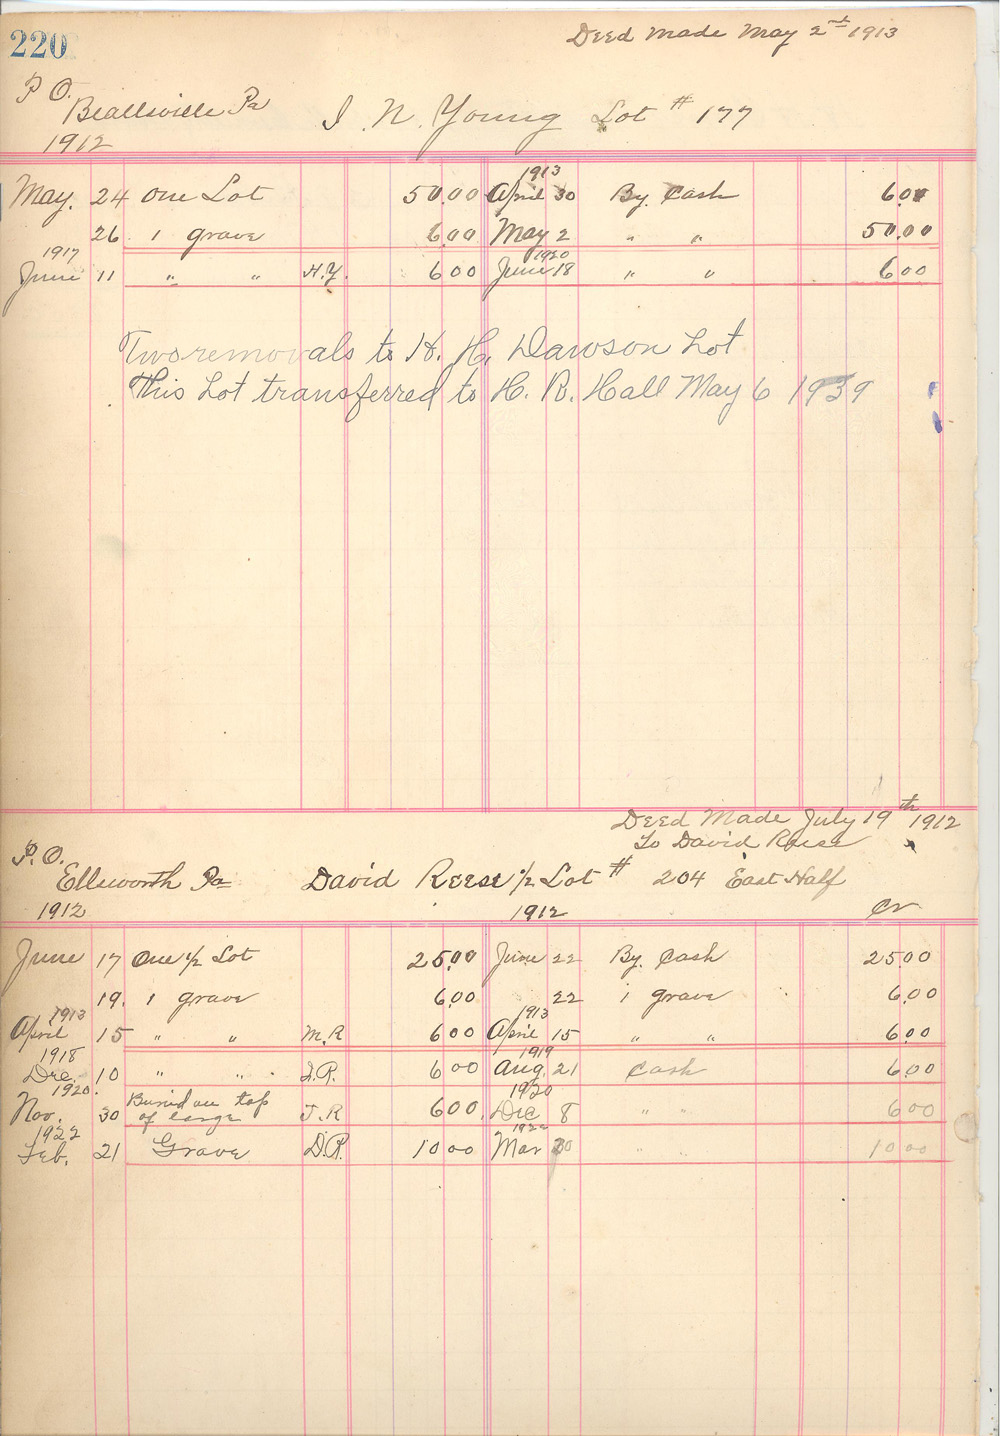 220
Deed Made May 2nd 1913
P O.
Beallsville Pa
I. N. Young Lot # 177
1912
1913
May. 24 One Lot 50.00 April 30 By. Cash 6.00
26 1 grave 6.00 May 2 " " 50.00
1917 1920
June 11 " " H.Y. 6 00 June 18 " " 6 00
Two removals to H. H. Dawson Lot
This Lot transferred to H. R. Hall May 6 1939
Deed Made July 19th 1912
To David Reese
P.O.
Ellsworth Pa David Reese 1/2 Lot # 204 East Half
1912 1912 Cr
June 17 One 1/2 Lot 25.00 June 22 By. Cash 25.00
19. 1 grave 6.00 22 1 grave 6.00
1913 1913
April 15 " " M.R 6 00 April 15 " " 6.00
1918 1919
Dec. 10 " " J.R. 6 00 Aug. 21 Cash 6.00
1920. 1920
Nov. 30 Buried on top of large J.R 6 00. Dec 8 " " 6 00
1922 1922
Feb. 21 Grave D.R. 10 00 Mar 20 " " 10 00